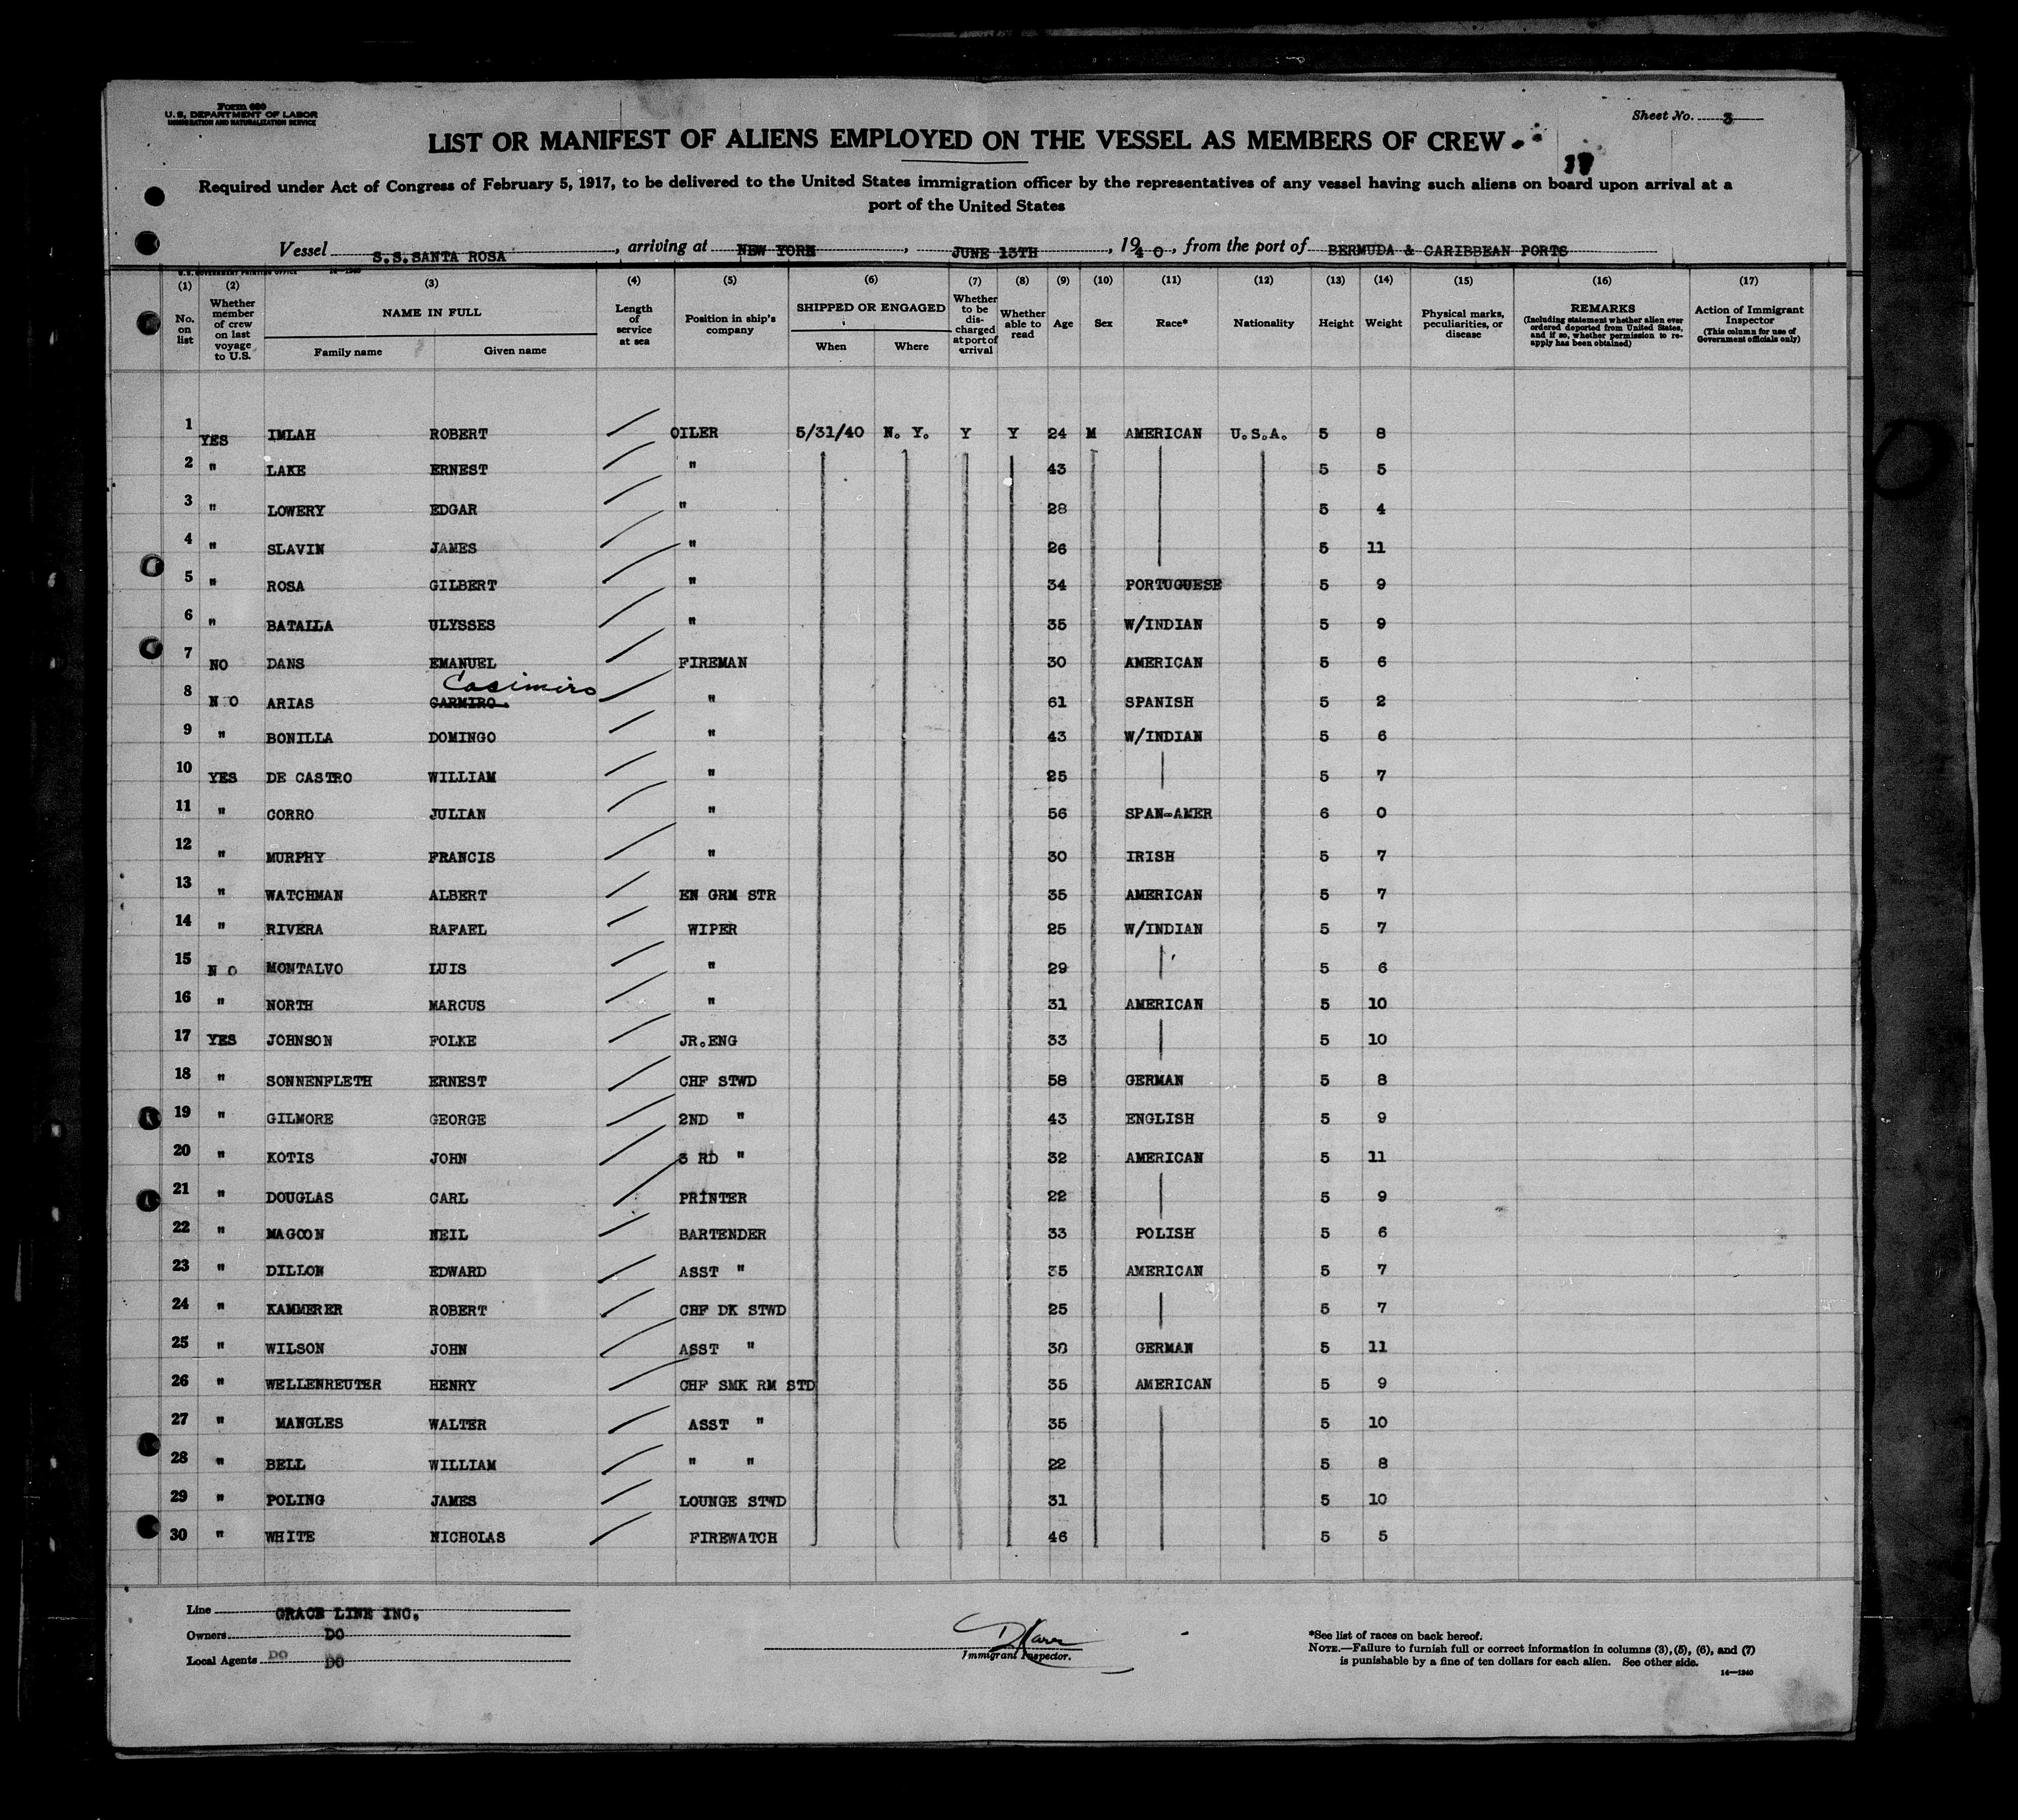 Form 680
U.S. DEPARTMENT OF LABOR
IMMIGRATION AND NATURALIZATION SERVICE
Sheet No. 3
LIST OR MANIFEST OF ALIENS EMPLOYED ON THE VESSEL AS MEMBERS OF CREW
Required under Act of Congress of February 5, 1917, to be delivered to the United States immigration officer by the representatives of any vessel having such aliens on board upon arrival at a
port of the United States
Vessel S.S.SANTA ROSA, arriving at NEW YORK, JUNE 13TH, 1940, from the port of BERMUDA & CARIBBEAN PORTS
U.S. GOVERNMENT PRINTING OFFICE 14—1240
(1) (2) (3) (4) (5) (6) (7) (8) (9) (10) (11) (12) (13) (14) (15) (16) (17)
No. on list
Whether member of crew on last voyage to U.S.
NAME IN FULL
Family name Given name
Length of service at sea
Position in ship's company
SHIPPED OR ENGAGED
When Where
Whether to be discharged at port of arrival
Whether able to read
Age
Sex
Race*
Nationality
Height
Weight
Physical marks, peculiarities, or disease
REMARKS
(Including statement whether alien ever ordered deported from United States, and if so, whether permission to re-apply has been obtained)
Action of Immigrant Inspector
(This column for use of Government officials only)
1 YES IMLAH ROBERT OILER 5/31/40 N. Y. Y Y 24 M AMERICAN U.S.A. 5 8
2 " LAKE ERNEST " 43 5 5
3 " LOWERY EDGAR " 28 5 4
4 " SLAVIN JAMES " 26 5 11
5 " ROSA GILBERT " 34 PORTUGUESE 5 9
6 " BATALLA ULYSSES " 35 W/INDIAN 5 9
7 NO DANS EMANUEL FIREMAN 30 AMERICAN 5 6
Casimiro
8 N O ARIAS GARMIRO " 61 SPANISH 5 2
9 " BONILLA DOMINGO " 43 W/INDIAN 5 6
10 YES DE CASTRO WILLIAM " 25 5 7
11 " CORRO JULIAN " 56 SPAN-AMER 6 0
12 " MURPHY FRANCIS " 30 IRISH 5 7
13 " WATCHMAN ALBERT EN GRM STR 35 AMERICAN 5 7
14 " RIVERA RAFAEL WIPER 25 W/INDIAN 5 7
15 N O MONTALVO LUIS " 29 5 6
16 " NORTH MARCUS " 31 AMERICAN 5 10
17 YES JOHNSON FOLKE JR.ENG 33 5 10
18 " SONNENFLETH ERNEST CHF STWD 58 GERMAN 5 8
19 " GILMORE GEORGE 2ND " 43 ENGLISH 5 9
20 " KOTIS JOHN 3 RD " 32 AMERICAN 5 11
21 " DOUGLAS CARL PRINTER 22 5 9
22 " MAGOON NEIL BARTENDER 33 POLISH 5 6
23 " DILLON EDWARD ASST " 35 AMERICAN 5 7
24 " KAMMERER ROBERT CHF DK STWD 25 5 7
25 " WILSON JOHN ASST " 30 GERMAN 5 11
26 " WELLENREUTER HENRY CHF SMK RM STD 35 AMERICAN 5 9
27 " MANGLES WALTER ASST " 35 5 10
28 " BELL WILLIAM " " 22 5 8
29 " POLING JAMES LOUNGE STWD 31 5 10
30 " WHITE NICHOLAS FIREWATCH 46 5 5
Line GRACE LINE INC.
Owners DO
Local Agents DO DO
Immigrant Inspector.
*See list of races on back hereof.
NOTE.—Failure to furnish full or correct information in columns (3), (5), (6), and (7)
is punishable by a fine of ten dollars for each alien. See other side.
14—1240